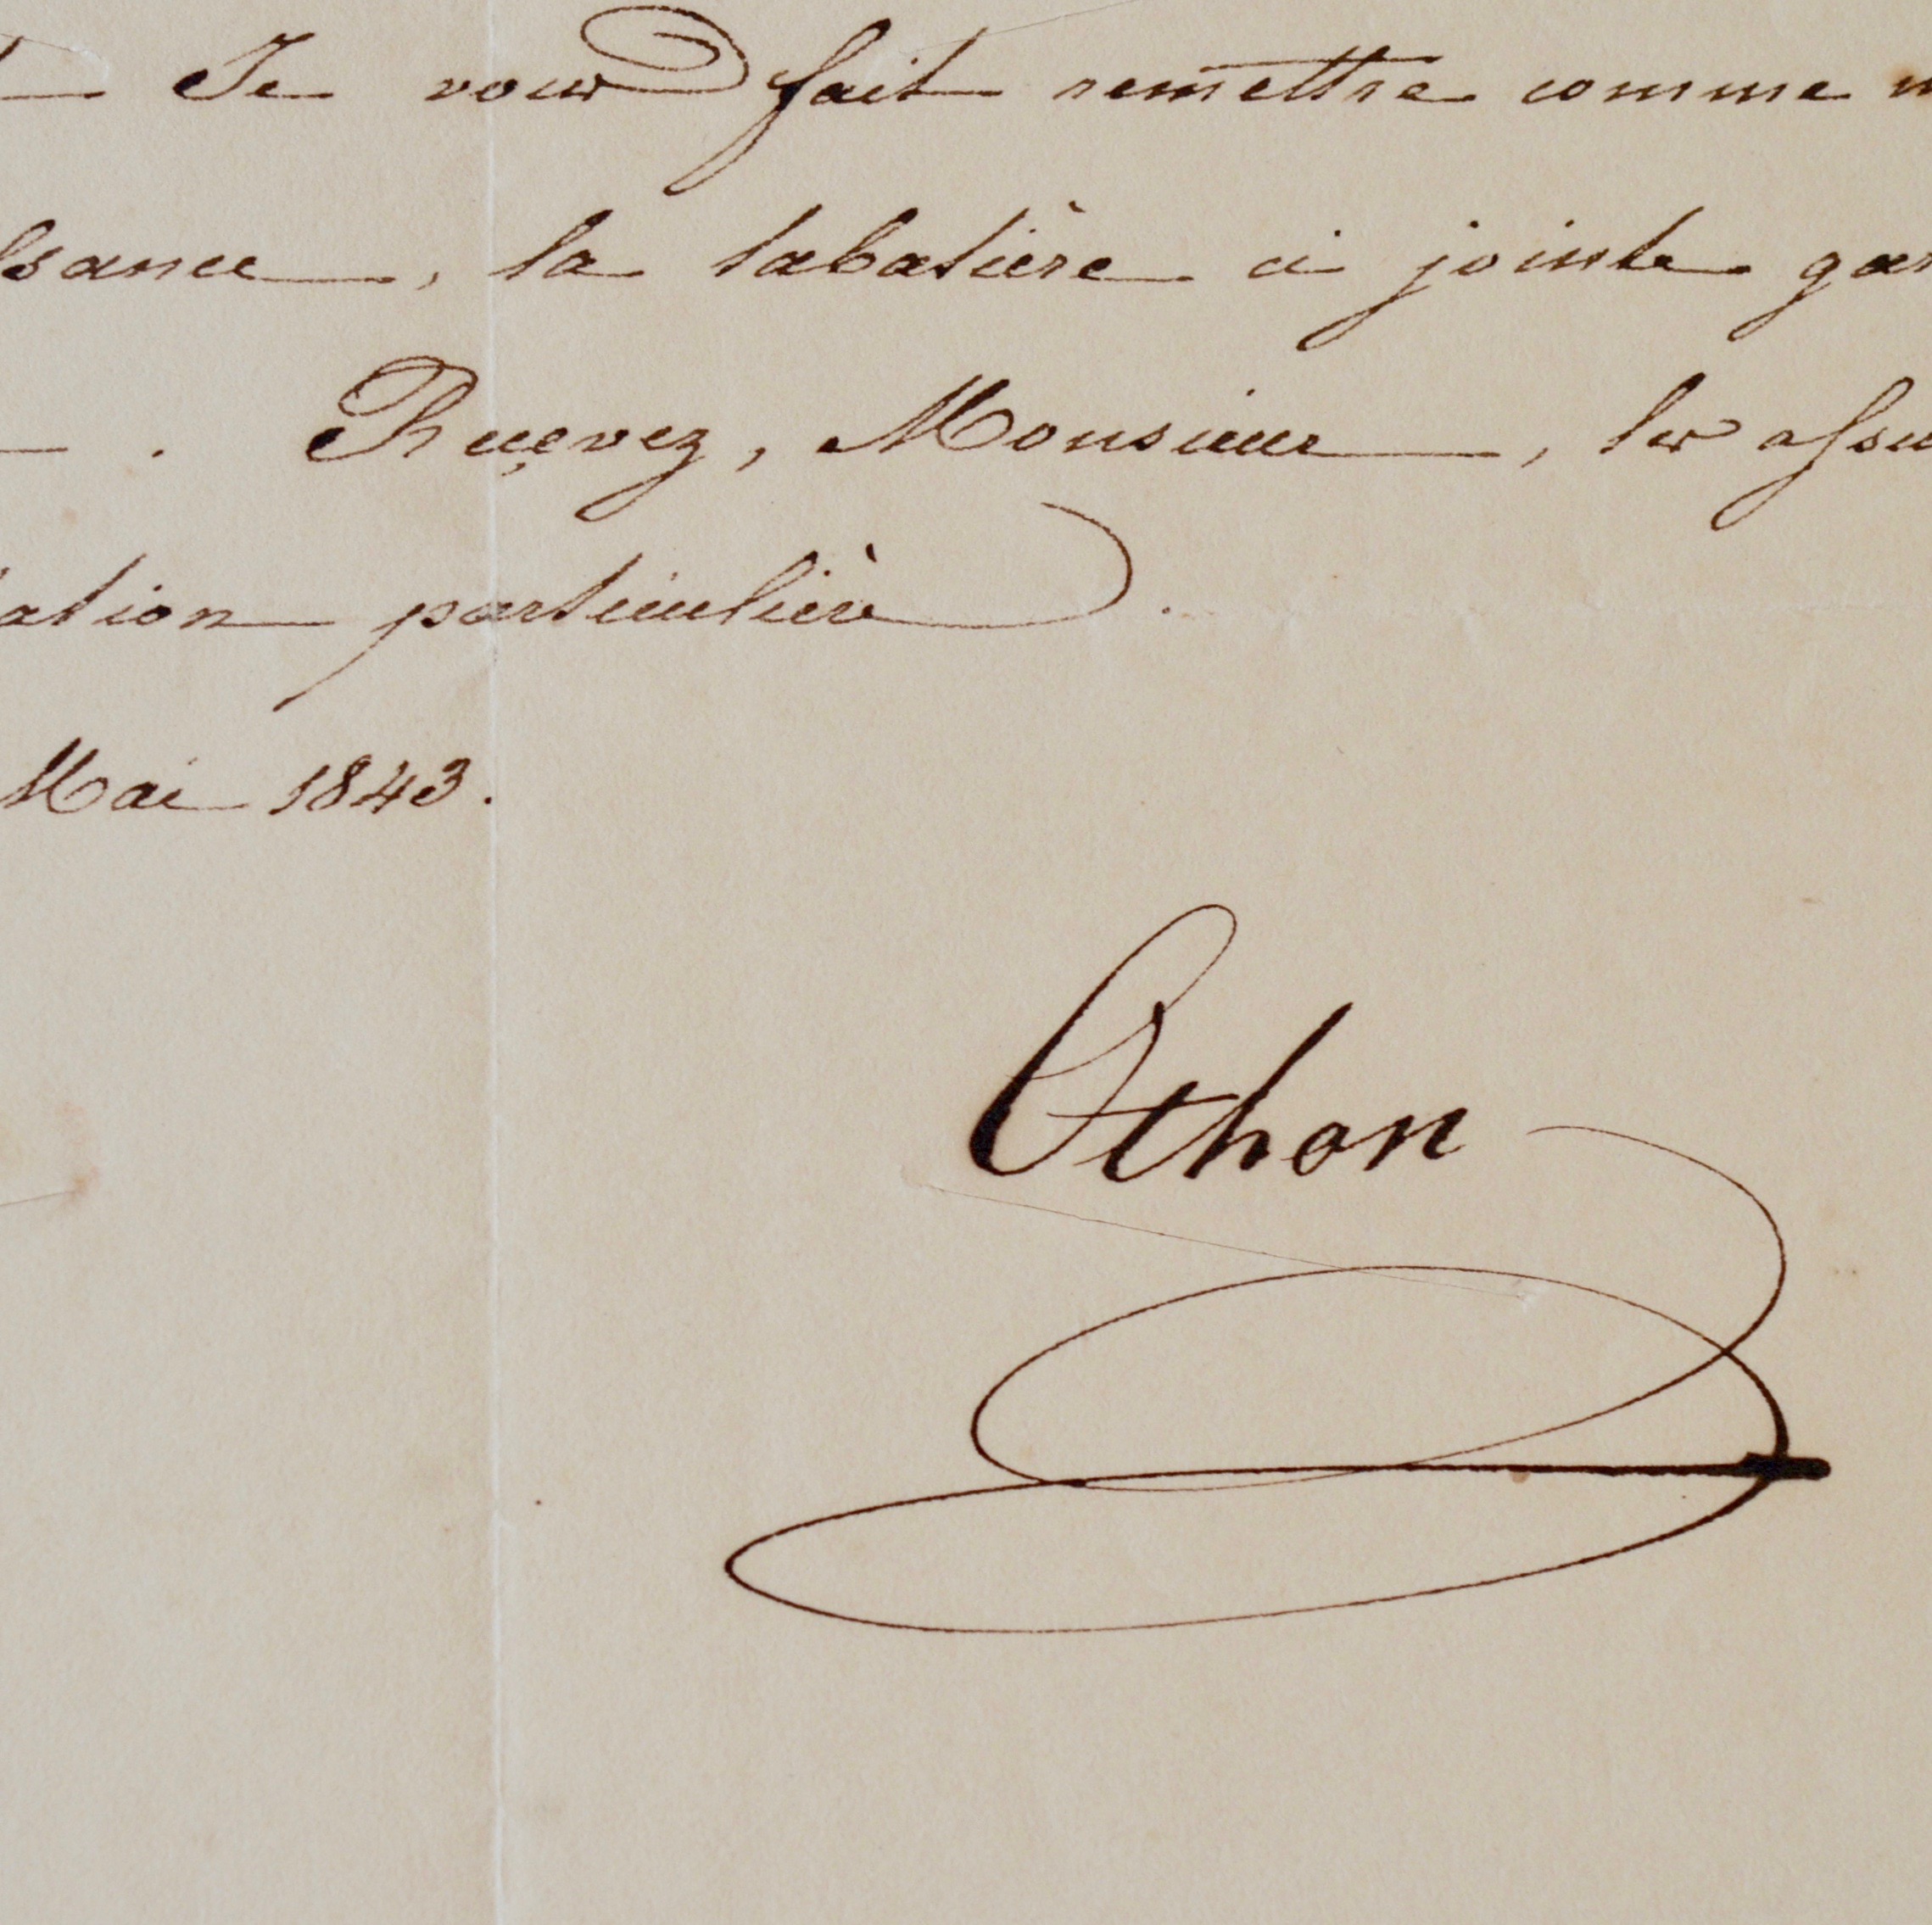 Je vous fait remettre comme
ssance, la tabatière ci jointe gar
. Reçevez, Monsieur, les assu
ation particulière.
Mai 1843.
Othon